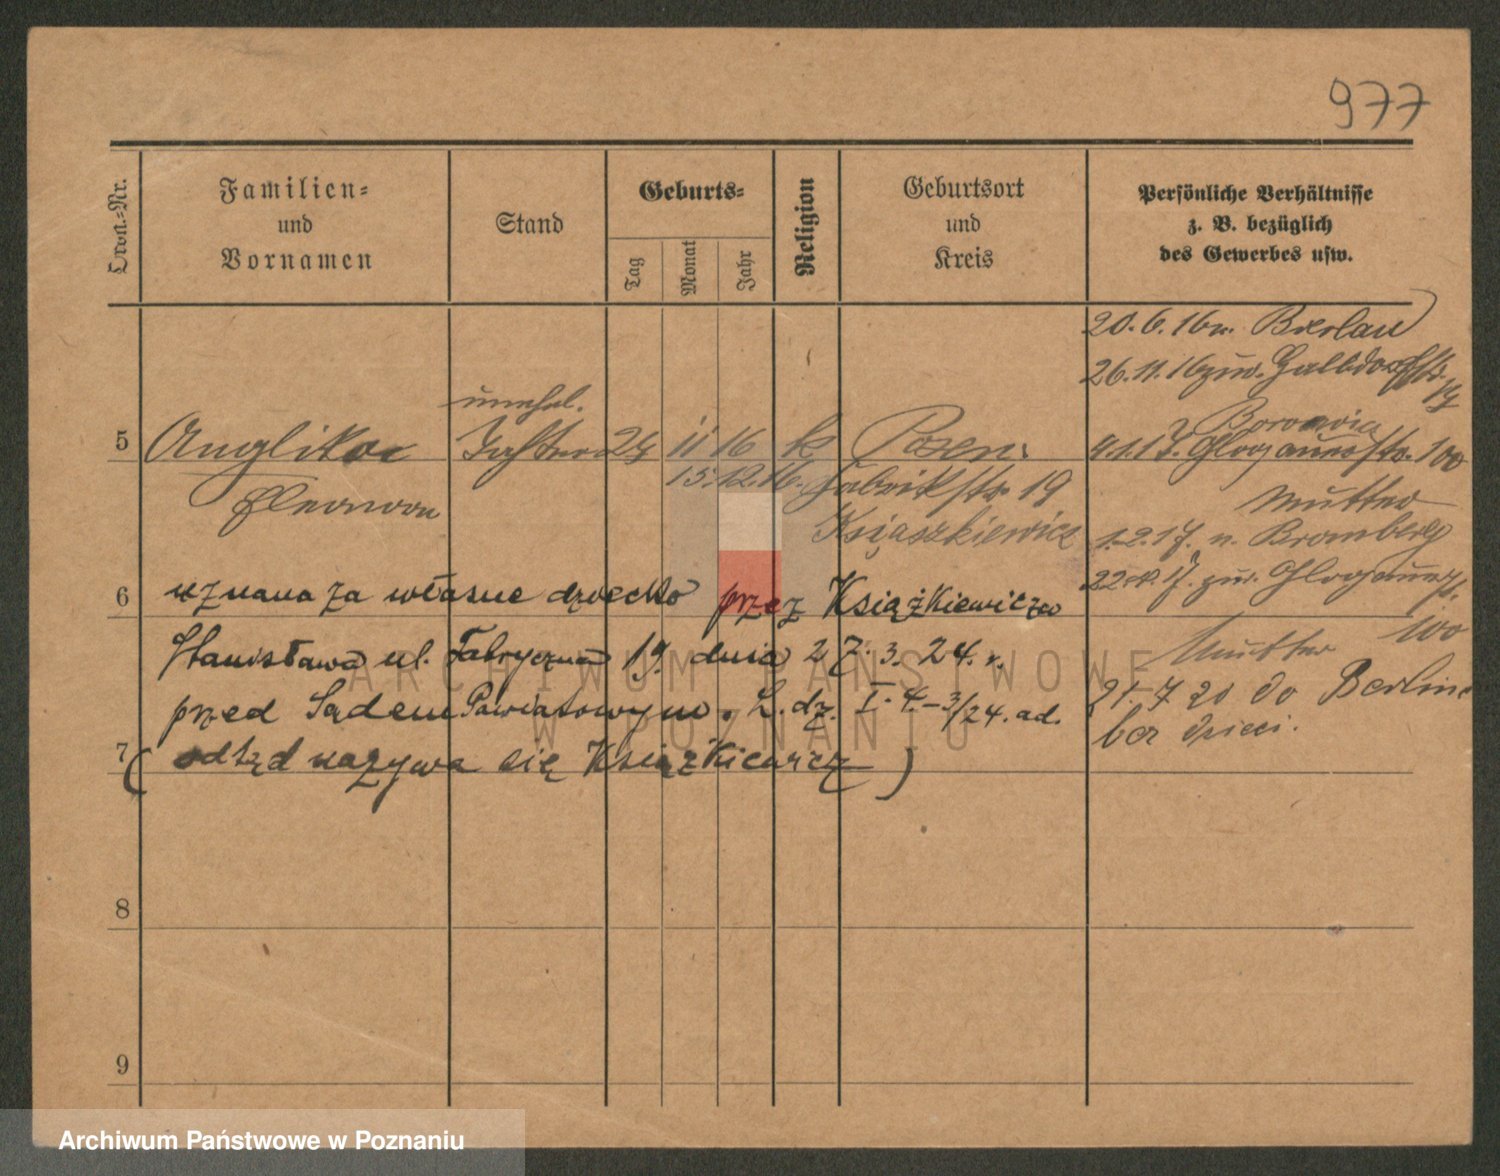 977
Ordn.-Nr.
Familien-
und
Vornamen
Stand
Geburts-
Tag
Monat
Jahr
Religion
Geburtsort
und
Kreis
Persönliche Verhältnisse
z. B. bezüglich
des Gewerbes usw.
20.6.16 n. Breslau
26.11.16 zur.
unehel.
5 Anglikoc Tochter 24 11 16 k Posen.
Boronica
4.1.17. Glogauerstr. 100
Eleonore
15.12.16. Fabrikstr. 19
Książkiewicz
Mutter
1.2.17. n. Bromberg
22. 17. zur. Glogauerst.
100
6 uznana za własne dziecko przez Książkiewicza
Stanisława ul. Fabryczna 19. dnia 27.3.24.r.
Mutter
przed Sądem Powiatowym. L.dz. I.4.-3/24. ad.
21.7 20 do Berlina
bez dzieci.
7 (odtąd nazywa się Książkiewicz)
8
9
ARCHIWUM PAŃSTWOWE
W POZNANIU
Archiwum Państwowe w Poznaniu